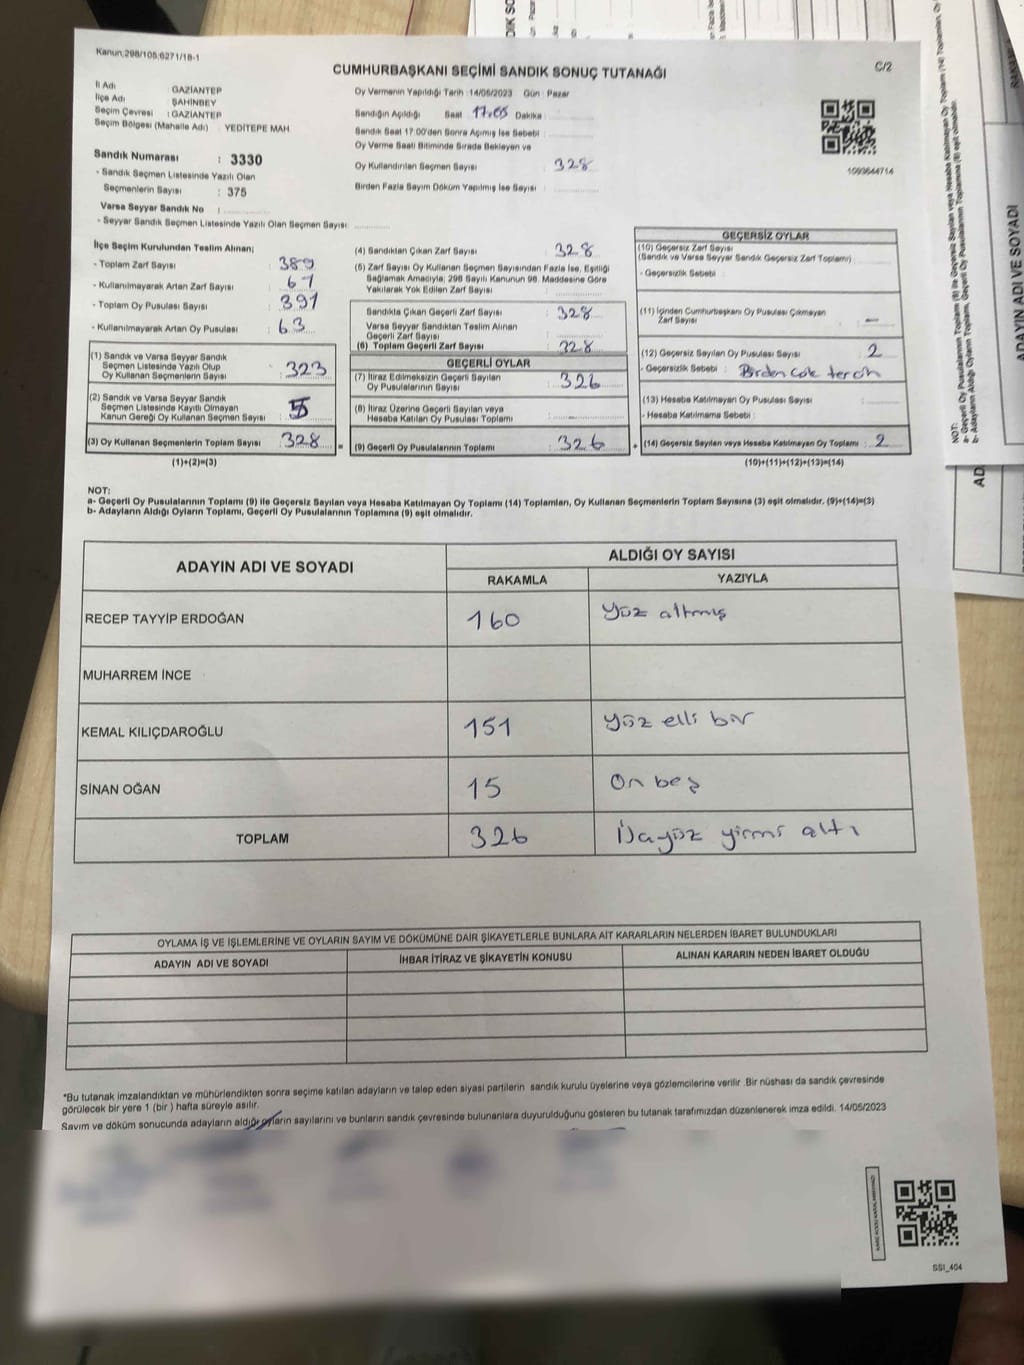 Kanun:298/105;6271/18-1
C/2
CUMHURBAŞKANI SEÇİMİ SANDIK SONUÇ TUTANAĞI
İl Adı : GAZİANTEP
İlçe Adı : ŞAHİNBEY
Seçim Çevresi : GAZİANTEP
Seçim Bölgesi (Mahalle Adı) : YEDİTEPE MAH.
Sandık Numarası : 3330
- Sandık Seçmen Listesinde Yazılı Olan
Seçmenlerin Sayısı : 375
Varsa Seyyar Sandık No :
- Seyyar Sandık Seçmen Listesinde Yazılı Olan Seçmen Sayısı :
Oy Vermenin Yapıldığı Tarih : 14/05/2023 Gün : Pazar
Sandığın Açıldığı Saat : 17.05 Dakika :
Sandık Saat 17:00'den Sonra Açılmış İse Sebebi :
Oy Verme Saati Bitiminde Sırada Bekleyen ve
Oy Kullandırılan Seçmen Sayısı : 328
Birden Fazla Sayım Döküm Yapılmış İse Sayısı :
1093644714
İlçe Seçim Kurulundan Teslim Alınan;
- Toplam Zarf Sayısı : 389
- Kullanılmayarak Artan Zarf Sayısı : 61
- Toplam Oy Pusulası Sayısı : 391
- Kullanılmayarak Artan Oy Pusulası : 63
(1) Sandık ve Varsa Seyyar Sandık
Seçmen Listesinde Yazılı Olup
Oy Kullanan Seçmenlerin Sayısı : 323
(2) Sandık ve Varsa Seyyar Sandık
Seçmen Listesinde Kayıtlı Olmayan
Kanun Gereği Oy Kullanan Seçmen Sayısı : 5
(3) Oy Kullanan Seçmenlerin Toplam Sayısı : 328
(1)+(2)=(3)
(4) Sandıktan Çıkan Zarf Sayısı : 328
(5) Zarf Sayısı Oy Kullanan Seçmen Sayısından Fazla İse, Eşitliği
Sağlamak Amacıyla; 298 Sayılı Kanunun 98. Maddesine Göre
Yakılarak Yok Edilen Zarf Sayısı :
Sandıkta Çıkan Geçerli Zarf Sayısı : 328
Varsa Seyyar Sandıktan Teslim Alınan
Geçerli Zarf Sayısı :
(6) Toplam Geçerli Zarf Sayısı : 328
GEÇERLİ OYLAR
(7) İtiraz Edilmeksizin Geçerli Sayılan
Oy Pusulasının Sayısı : 326
(8) İtiraz Üzerine Geçerli Sayılan veya
Hesaba Katılan Oy Pusulası Toplamı :
(9) Geçerli Oy Pusulalarının Toplamı : 326
GEÇERSİZ OYLAR
(10) Geçersiz Zarf Sayısı
(Sandık ve Varsa Seyyar Sandık Geçersiz Zarf Toplamı) :
- Geçersizlik Sebebi :
(11) İçinden Cumhurbaşkanı Oy Pusulası Çıkmayan
Zarf Sayısı : –
(12) Geçersiz Sayılan Oy Pusulası Sayısı : 2
- Geçersizlik Sebebi : Birden çok tercih
(13) Hesaba Katılmayan Oy Pusulası Sayısı :
- Hesaba Katılmama Sebebi :
(14) Geçersiz Sayılan veya Hesaba Katılmayan Oy Toplamı : 2
(10)+(11)+(12)+(13)=(14)
NOT:
a- Geçerli Oy Pusulalarının Toplamı (9) ile Geçersiz Sayılan veya Hesaba Katılmayan Oy Toplamı (14) Toplamları, Oy Kullanan Seçmenlerin Toplam Sayısına (3) eşit olmalıdır. (9)+(14)=(3)
b- Adayların Aldığı Oyların Toplamı, Geçerli Oy Pusulalarının Toplamına (9) eşit olmalıdır.
ADAYIN ADI VE SOYADI
ALDIĞI OY SAYISI
RAKAMLA YAZIYLA
RECEP TAYYİP ERDOĞAN 160 Yüz altmış
MUHARREM İNCE
KEMAL KILIÇDAROĞLU 151 Yüz elli bir
SİNAN OĞAN 15 On beş
TOPLAM 326 Üçyüz yirmi altı
OYLAMA İŞ VE İŞLEMLERİNE VE OYLARIN SAYIM VE DÖKÜMÜNE DAİR ŞİKAYETLERLE BUNLARA AİT KARARLARIN NELERDEN İBARET BULUNDUKLARI
ADAYIN ADI VE SOYADI İHBAR İTİRAZ VE ŞİKAYETİN KONUSU ALINAN KARARIN NEDEN İBARET OLDUĞU
*Bu tutanak imzalandıktan ve mühürlendikten sonra seçime katılan adayların ve talep eden siyasi partilerin sandık kurulu üyelerine veya gözlemcilerine verilir .Bir nüshası da sandık çevresinde
görülecek bir yere 1 (bir ) hafta süreyle asılır.
Sayım ve döküm sonucunda adayların aldığı oyların sayılarını ve bunların sandık çevresinde bulunanlara duyurulduğunu gösteren bu tutanak tarafımızdan düzenlenerek imza edildi. 14/05/2023
SSI_404
ADAYIN ADI VE SOYADI